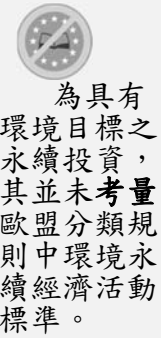 為具有
環境目標之
永續投資，
其並未考量
歐盟分類規
則中環境永
續經濟活動
標準。